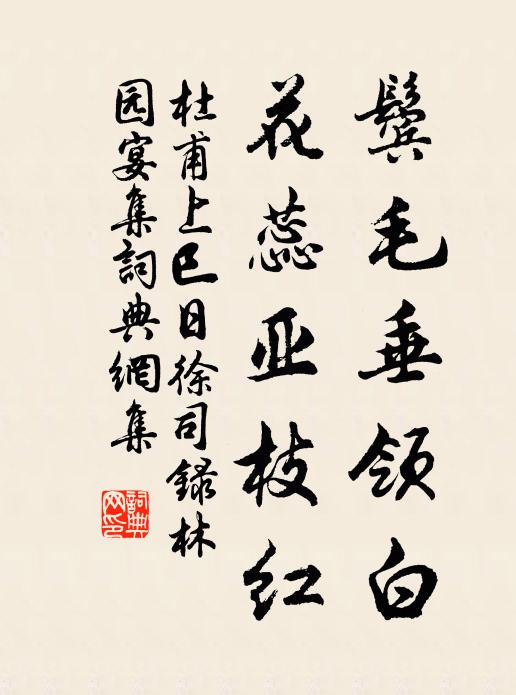 鬓毛垂领白
花蕊亚枝红
杜甫上巳日徐司錄林
园宴集詞典網集
詞典网印